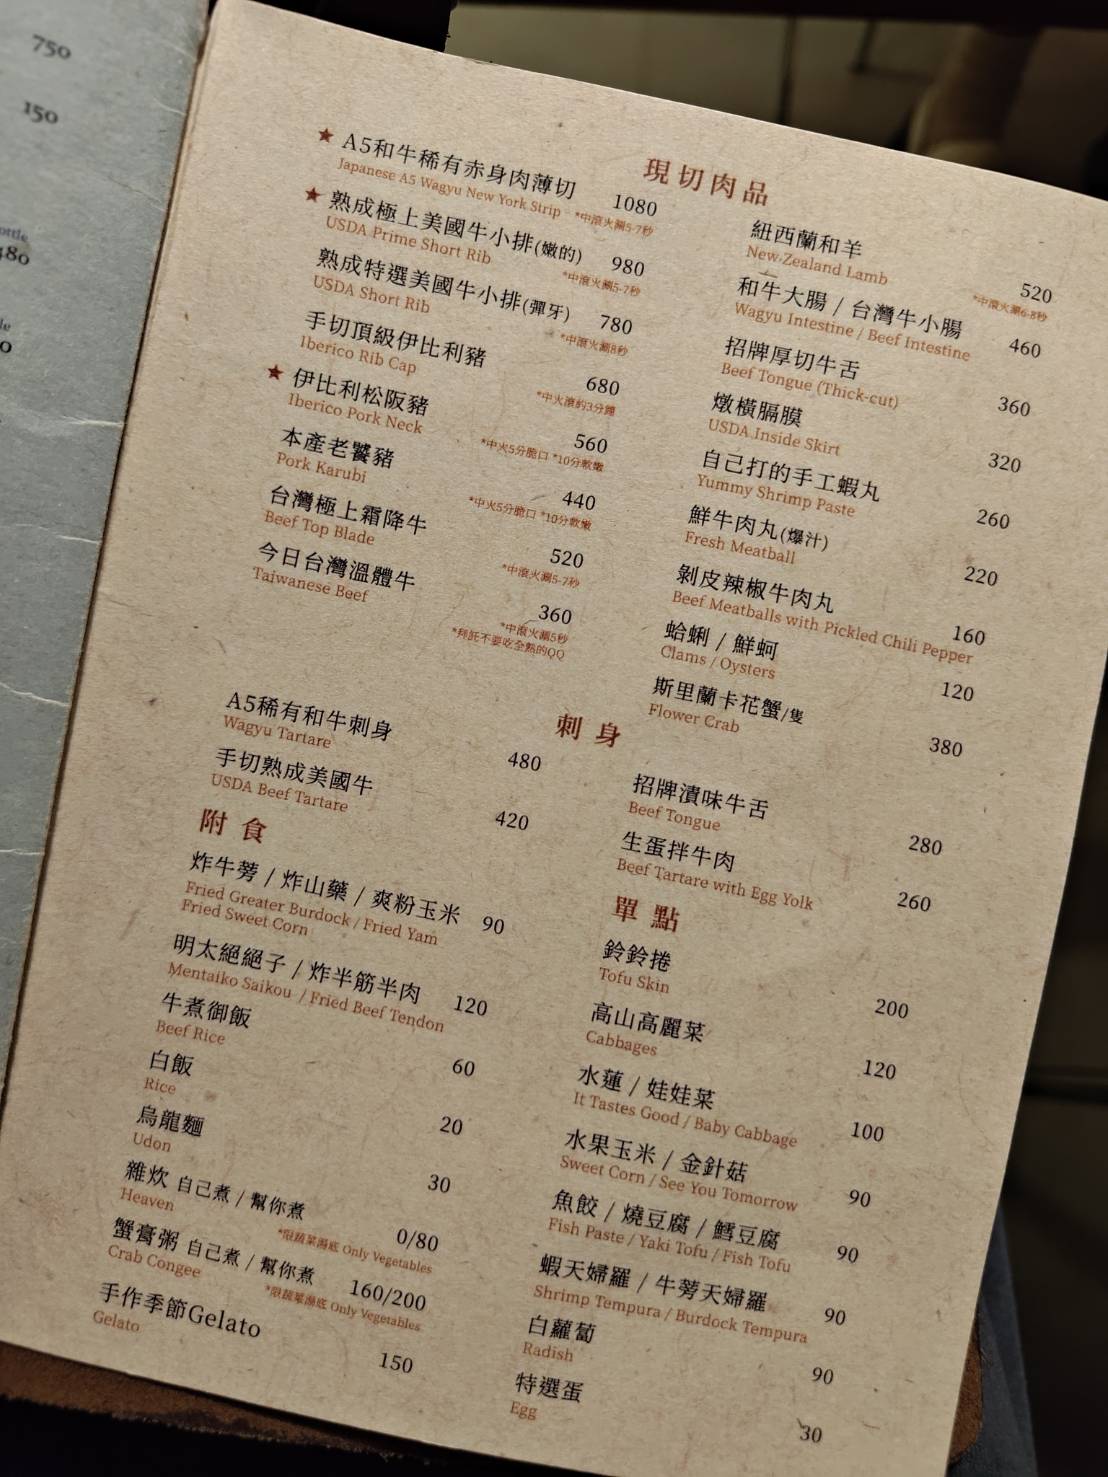 750
150
ottle
480
le
0
現切肉品
★ A5和牛稀有赤身肉薄切 1080
Japanese A5 Wagyu New York Strip *中滾火涮5-7秒
★ 熟成極上美國牛小排(嫩的) 980
USDA Prime Short Rib *中滾火涮5-7秒
熟成特選美國牛小排(彈牙) 780
USDA Short Rib *中滾火涮8秒
手切頂級伊比利豬 680
Iberico Rib Cap *中火滾約3分鐘
★ 伊比利松阪豬 560
Iberico Pork Neck *中火5分脆口 *10分軟嫩
本產老饕豬 440
Pork Karubi *中火5分脆口 *10分軟嫩
台灣極上霜降牛 520
Beef Top Blade *中滾火涮5-7秒
今日台灣溫體牛 360
Taiwanese Beef *中滾火涮5秒
*拜託不要吃全熟的QQ
紐西蘭和羊 520
New Zealand Lamb *中滾火涮6-8秒
和牛大腸 / 台灣牛小腸 460
Wagyu Intestine / Beef Intestine
招牌厚切牛舌 360
Beef Tongue (Thick-cut)
燉橫膈膜 320
USDA Inside Skirt
自己打的手工蝦丸 260
Yummy Shrimp Paste
鮮牛肉丸(爆汁) 220
Fresh Meatball
剝皮辣椒牛肉丸 160
Beef Meatballs with Pickled Chili Pepper
蛤蜊 / 鮮蚵 120
Clams / Oysters
斯里蘭卡花蟹/隻 380
Flower Crab
刺身
A5稀有和牛刺身 480
Wagyu Tartare
手切熟成美國牛 420
USDA Beef Tartare
招牌漬味牛舌 280
Beef Tongue
生蛋拌牛肉 260
Beef Tartare with Egg Yolk
附食
炸牛蒡 / 炸山藥 / 爽粉玉米 90
Fried Greater Burdock / Fried Yam
Fried Sweet Corn
明太絕絕子 / 炸半筋半肉 120
Mentaiko Saikou / Fried Beef Tendon
牛煮御飯 60
Beef Rice
白飯 20
Rice
烏龍麵 30
Udon
雜炊 自己煮 / 幫你煮 0/80
Heaven *限蔬菜湯底 Only Vegetables
蟹膏粥 自己煮 / 幫你煮 160/200
Crab Congee *限蔬菜湯底 Only Vegetables
手作季節Gelato 150
Gelato
單點
鈴鈴捲 200
Tofu Skin
高山高麗菜 120
Cabbages
水蓮 / 娃娃菜 100
It Tastes Good / Baby Cabbage
水果玉米 / 金針菇 90
Sweet Corn / See You Tomorrow
魚餃 / 燒豆腐 / 鱈豆腐 90
Fish Paste / Yaki Tofu / Fish Tofu
蝦天婦羅 / 牛蒡天婦羅 90
Shrimp Tempura / Burdock Tempura
白蘿蔔 90
Radish
特選蛋 30
Egg